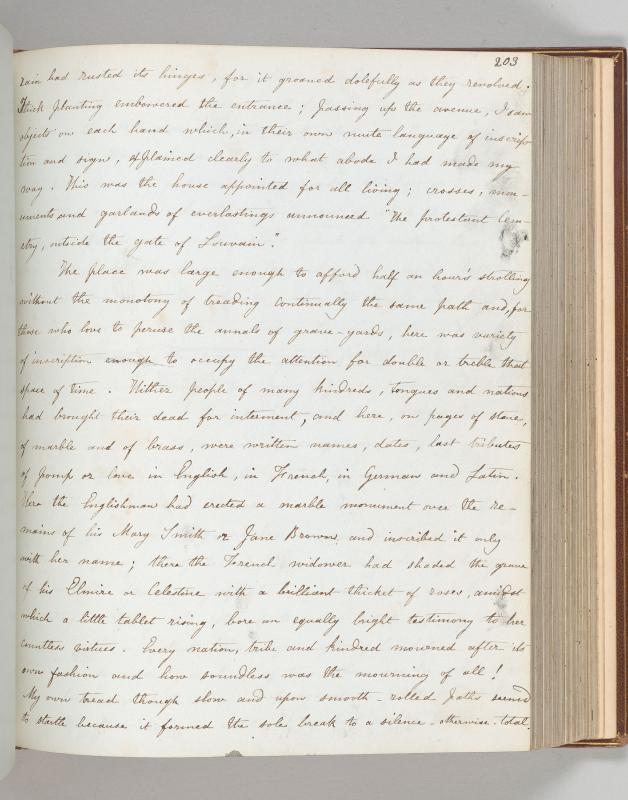 203
rain had rusted its hinges, for it groaned dolefully as they revolved.
Thick planting embowered the entrance; passing up the avenue, I saw
objects on each hand which, in their own mute language of inscrip-
tion and sign, explained clearly to what abode I had made my
way. This was the house appointed for all living; crosses, mon-
uments and garlands of everlastings announced "The protestant Cem-
etry, outside the gate of Louvain".
The place was large enough to afford half an hour's strolling
without the monotony of treading continually the same path and, for
those who love to peruse the annals of grave-yards, here was variety
of inscription enough to occupy the attention for double or treble that
space of time. Hither people of many kindreds, tongues and nations
had brought their dead for interment, and here, on pages of stone,
of marble and of brass, were written names, dates, last tributes
of pomp or love in English, in French, in German and Latin.
Here the Englishman had erected a marble monument over the re-
mains of his Mary Smith or Jane Brown, and inscribed it only
with her name; there the French widower had shaded the grave
of his Elmire or Celestine with a brilliant thicket of roses, amidst
which a little tablet rising, bore an equally bright testimony to her
countless virtues. Every nation, tribe and kindred mourned after its
own fashion and how soundless was the mourning of all!
My own tread though slow and upon smooth-rolled paths seemed
to startle because it formed the sole break to a silence otherwise total.